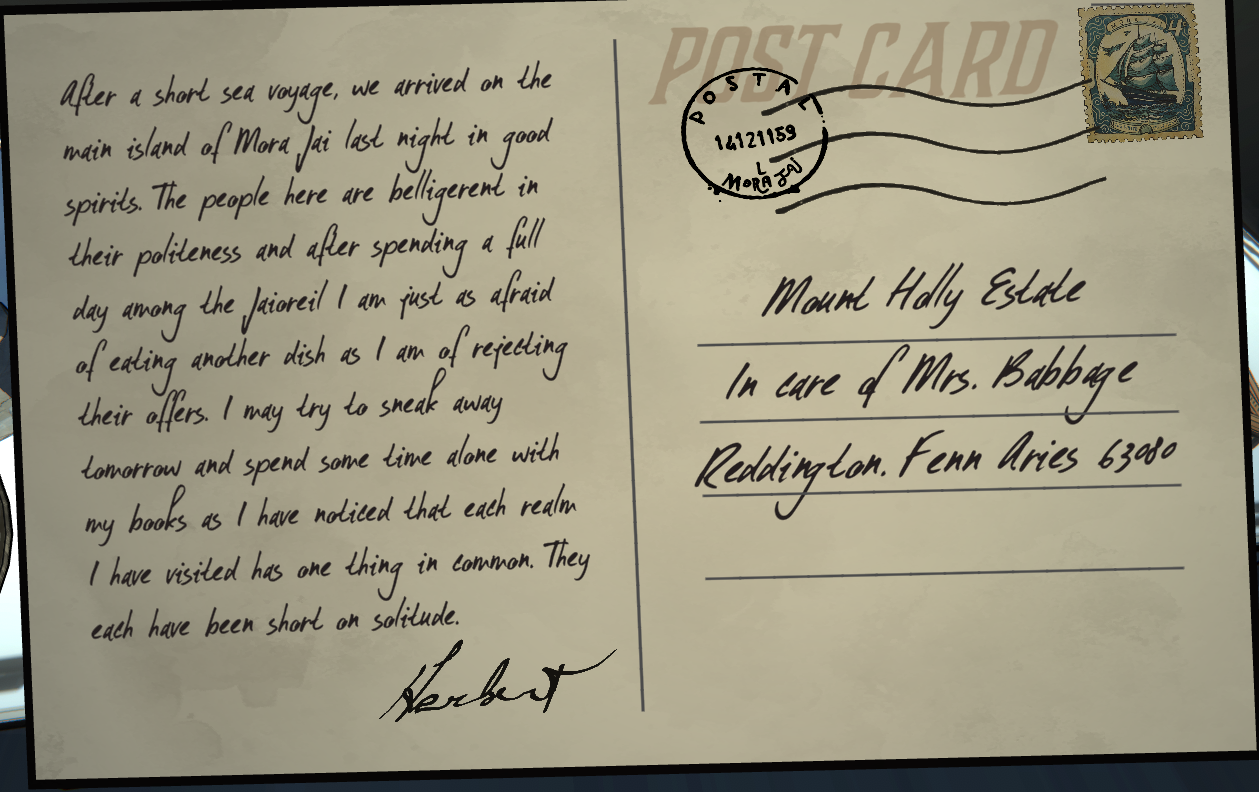 After a short sea voyage, we arrived on the
main island of Mora Jai last night in good
spirits. The people here are belligerent in
their politeness and after spending a full
day among the Jaioreil I am just as afraid
of eating another dish as I am of rejecting
their offers. I may try to sneak away
tomorrow and spend some time alone with
my books as I have noticed that each realm
I have visited has one thing in common. They
each have been short on solitude.
Herbert
POST CARD
POSTAL
14121159
L
MORA JAI
MORA
4
Mount Holly Estate
In care of Mrs. Babbage
Reddington. Fenn Aries 63080